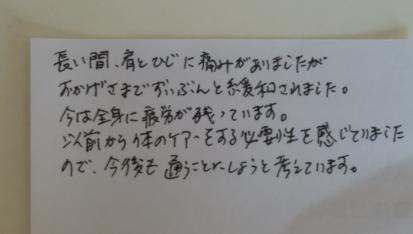 長い間、肩とひじに痛みがありましたが
おかげさまでずいぶんと緩和されました。
今は全身に疲労が残っています。
以前から体のケアーをする必要性を感じていました
ので、今後も通うことにしようと考えています。